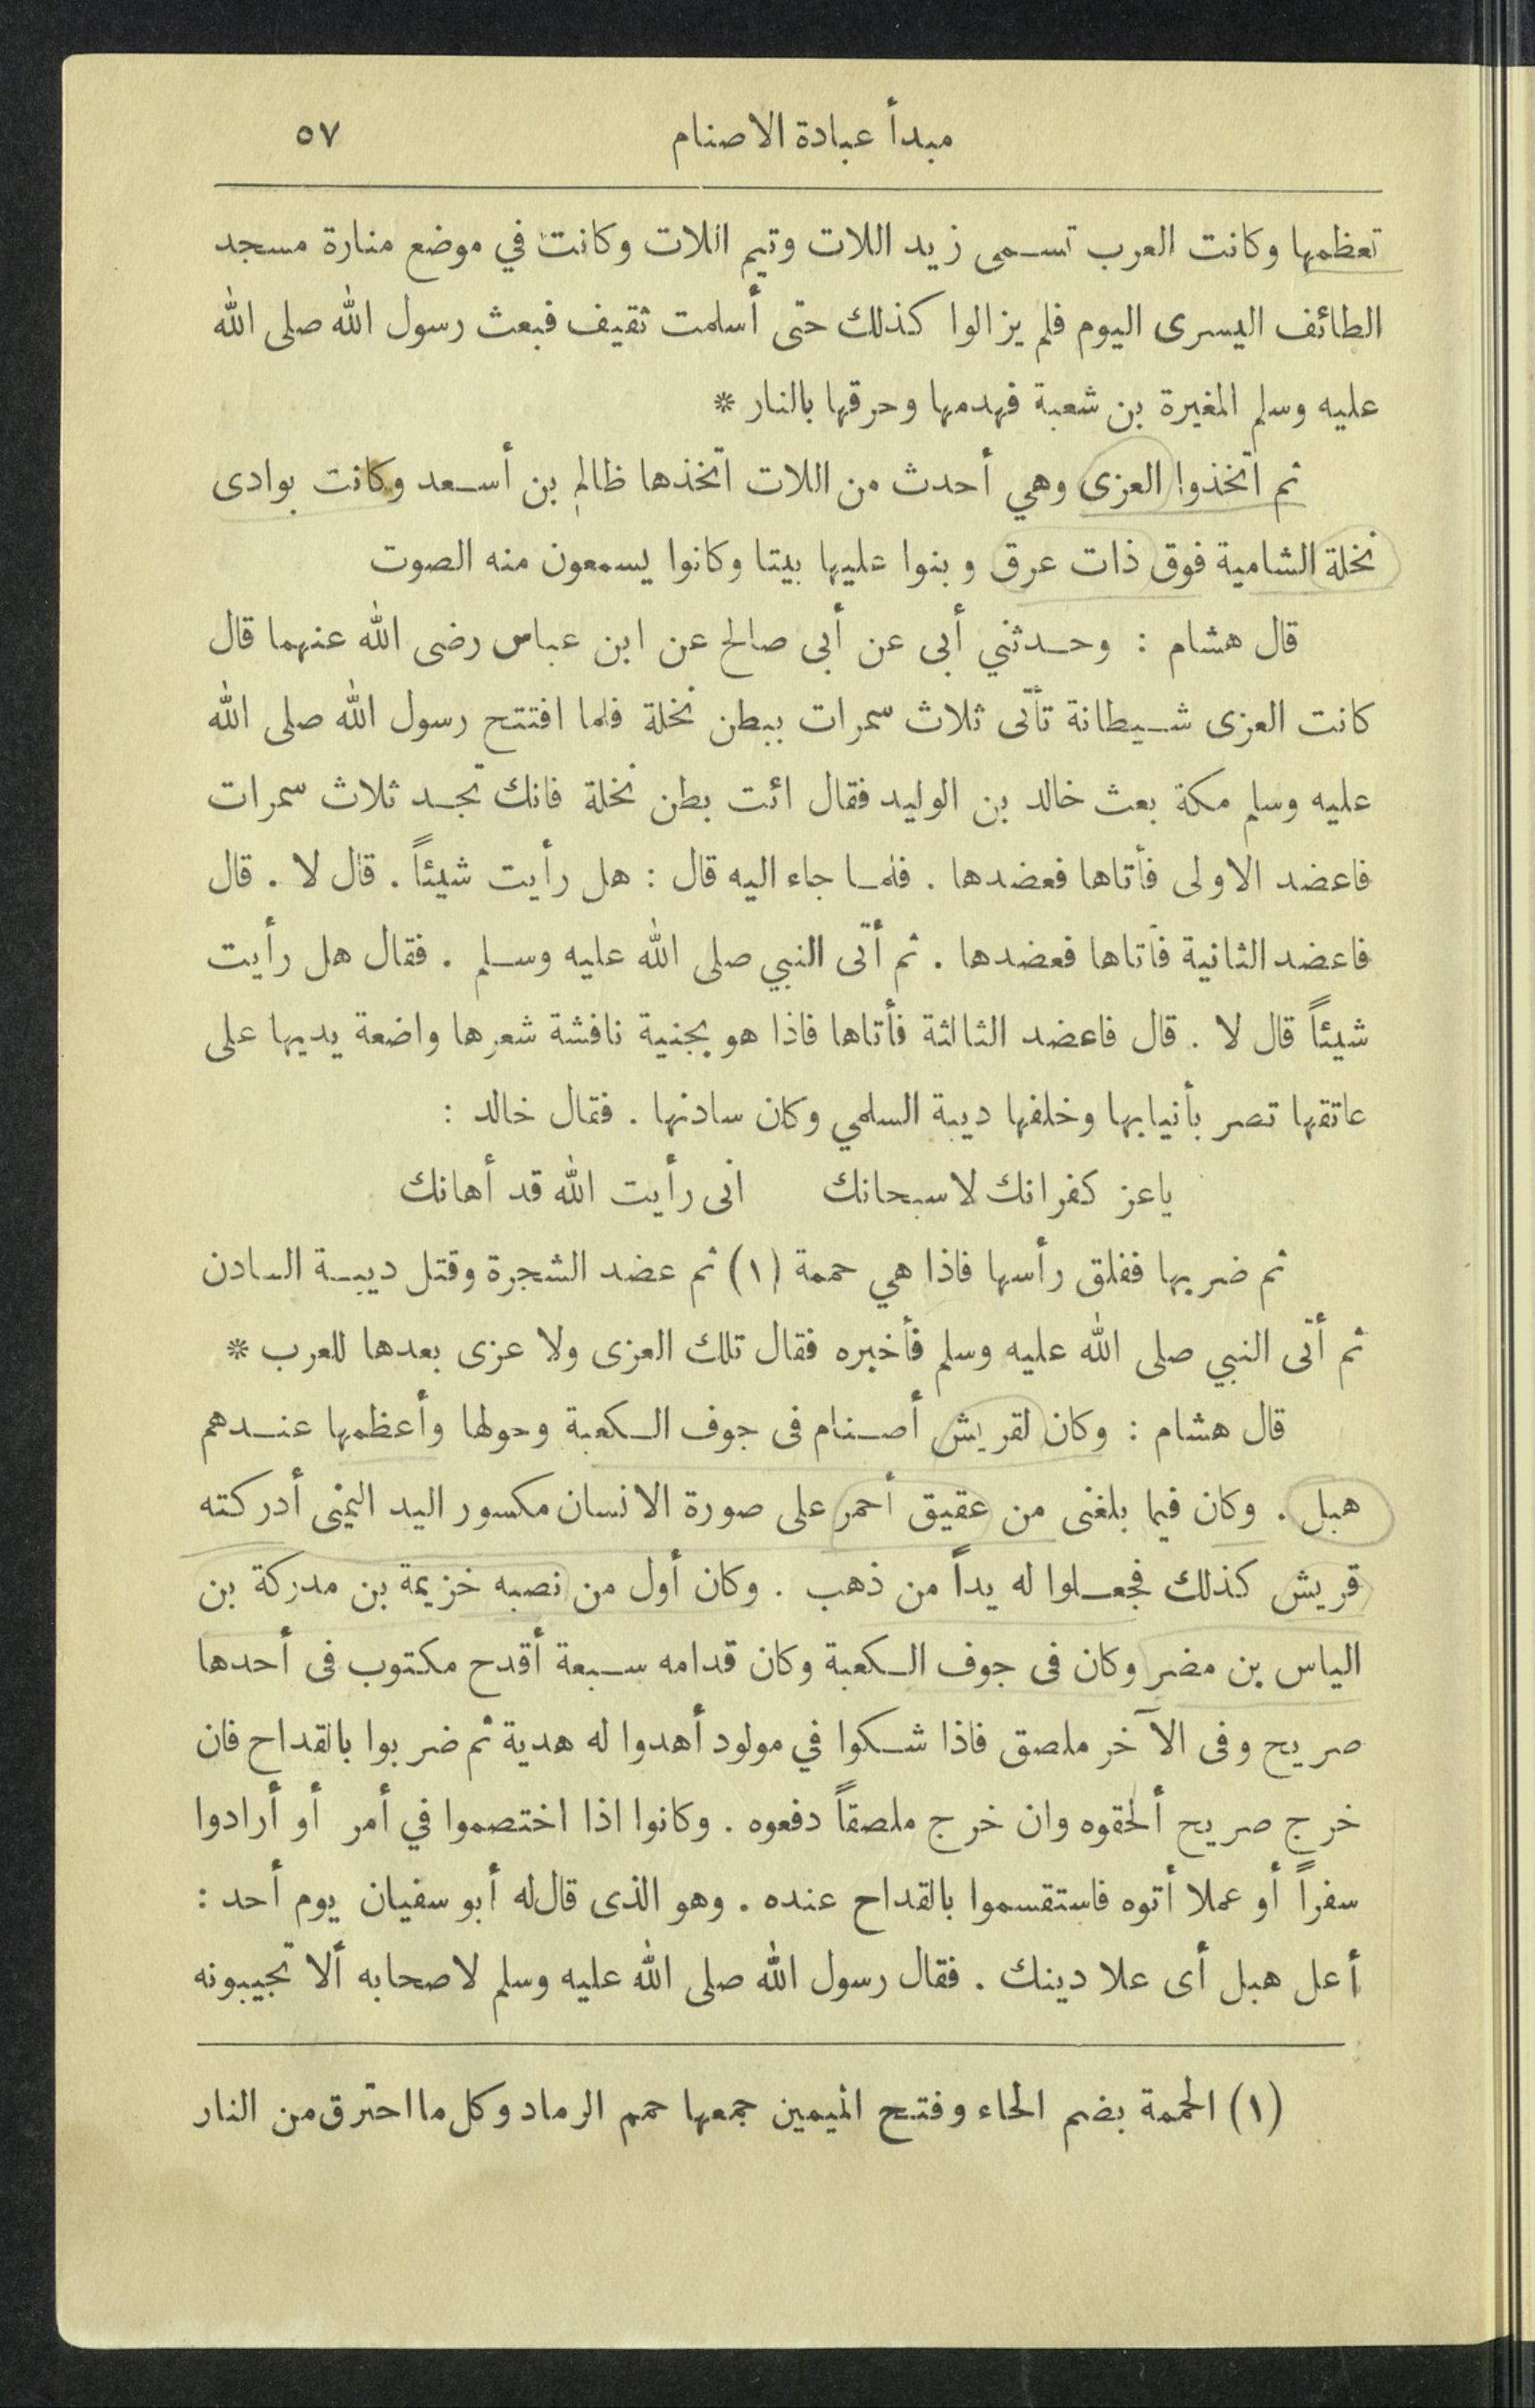 مبدأ عبادة الاصنام ٥٧
تعظمها وكانت العرب تسمى زيد اللات وتيم اللات وكانت في موضع منارة مسجد
الطائف اليسرى اليوم فلم يزالوا كذلك حتى أسلمت ثقيف فبعث رسول الله صلى الله
عليه وسلم المغيرة بن شعبة فهدمها وحرقها بالنار *
ثم اتخذوا العزى وهي أحدث من اللات اتخذها ظالم بن أسعد وكانت بوادى
نخلة الشامية فوق ذات عرق وبنوا عليها بيتا وكانوا يسمعون منه الصوت
قال هشام : وحدثني أبى عن أبى صالح عن ابن عباس رضى الله عنهما قال
كانت العزى شيطانة تأتى ثلاث سمرات ببطن نخلة فلما افتتح رسول الله صلى الله
عليه وسلم مكة بعث خالد بن الوليد فقال ائت بطن نخلة فانك تجد ثلاث سمرات
فاعضد الاولى فأتاها فعضدها . فلما جاء اليه قال : هل رأيت شيئاً . قال لا . قال
فاعضد الثانية فأتاها فعضدها . ثم أتى النبي صلى الله عليه وسلم . فقال هل رأيت
شيئاً قال لا . قال فاعضد الثالثة فأتاها فاذا هو بجنية نافشة شعرها واضعة يديها على
عاتقها تصر بأنيابها وخلفها دبية السلمي وكان سادنها . فقال خالد :
ياعز كفرانك لا سبحانك انى رأيت الله قد أهانك
ثم ضربها ففلق رأسها فاذا هي حممة (١) ثم عضد الشجرة وقتل دبية السادن
ثم أتى النبي صلى الله عليه وسلم فأخبره فقال تلك العزى ولا عزى بعدها للعرب *
قال هشام : وكان لقريش أصنام فى جوف الكعبة وحولها وأعظمها عندهم
هبل . وكان فيما بلغنى من عقيق أحمر على صورة الانسان مكسور اليد اليمنى أدركته
قريش كذلك فجعلوا له يداً من ذهب . وكان أول من نصبه خزيمة بن مدركة بن
الياس بن مضر وكان فى جوف الكعبة وكان قدامه سبعة أقدح مكتوب فى أحدها
صريح وفى الآخر ملصق فاذا شكوا في مولود أهدوا له هدية ثم ضربوا بالقداح فان
خرج صريح ألحقوه وان خرج ملصقاً دفعوه . وكانوا اذا اختصموا في أمر أو أرادوا
سفراً أو عملا أتوه فاستقسموا بالقداح عنده . وهو الذى قال له أبو سفيان يوم أحد :
أعل هبل أى علا دينك . فقال رسول الله صلى الله عليه وسلم لاصحابه ألا تجيبونه
(١) الحممة بضم الحاء وفتح الميمين جمعها حمم الرماد وكل ما احترق من النار